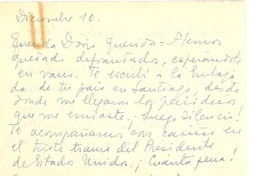 Diciembre 10.
Querida Doris querida: Hemos
quedado defraudados, esperándote
en vano. Te escribí a la Embaja
da de tu país en Santiago, desde
donde me llegaron los periódicos
que me enviaste, ¡luego silencio!
Te acompañamos con cariño en
el triste trance del Presidente
de Estados Unidos. ¡Cuánta pena!